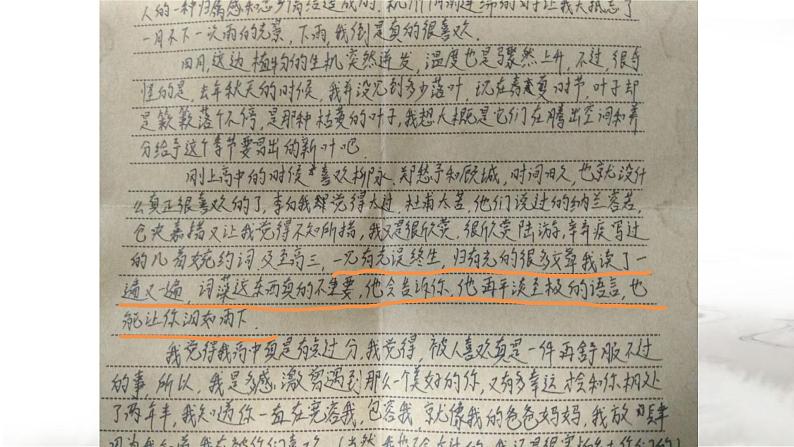 人的一种归属感和态
一月不下一次雨的光景,下雨,我倒是真的很喜欢.
四月,这边植物的生机突然迸发,温度也是骤然上升,不过,很奇
怪的是,去年秋天的时候,我并没见到多少落叶 现在春夏 时节,叶子却
是簌簌落个不停,是那种枯黄的叶子,我想大概是它们在腾出空间和养
分给予这个季节要冒出的新叶吧
刚上高中的时候 喜欢柳永,郑愁予和顾城,时间日久,也就没什
么真正很喜欢的了,李白我 觉得太过,杜甫太苦,他们说过的纳兰容若,
仓央嘉措又让我觉得不知所措,我又是很欣赏,很欣赏陆游,辛弃疾写过
的几首婉约词 及至高三,一见有光误终生,归有光的很多文章我读了一
遍又一遍,词藻这东西真的不重要,他会告诉你,他再平淡至极的语言,也
能让你泪如雨下.
我觉得我高中真是有点过分,我觉得,被人喜欢真是一件再舒服不过
的事,所以,我是多感激曾遇到那么一个美好的你,又有多幸运 才会和你相处
了两年半,我知道你一直在宽容我,包容我 就像我的爸爸妈妈,我放